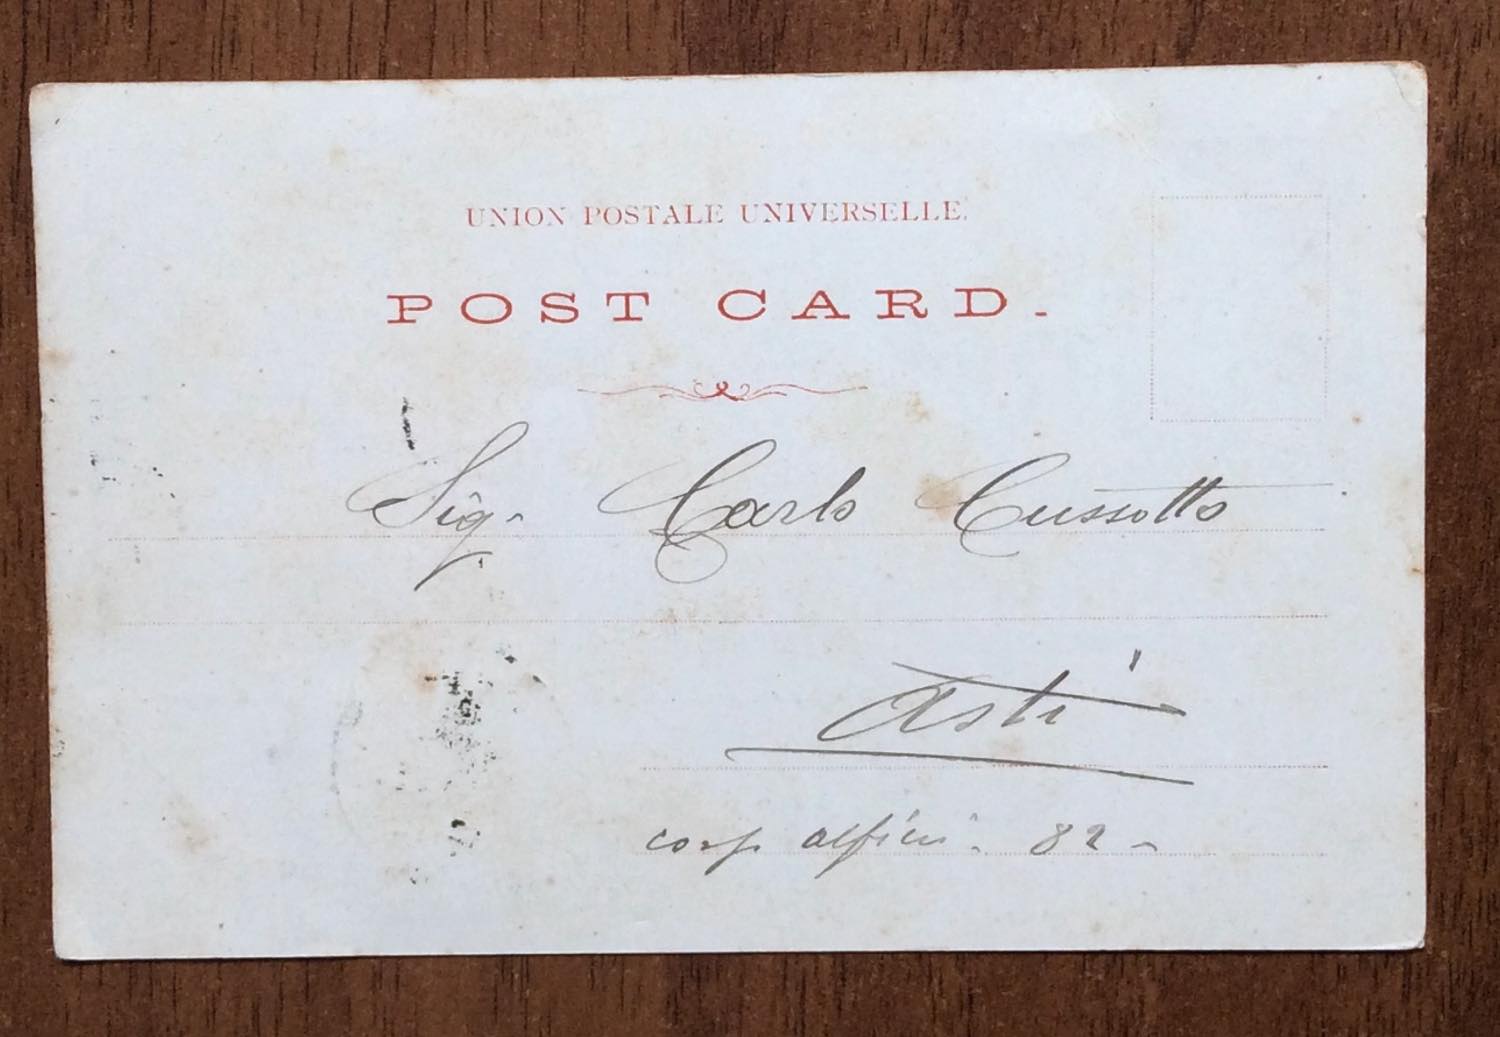 UNION POSTALE UNIVERSELLE.
POST CARD.
Sig. Carlo Cussotto
Asti
corso alfieri. 82 -